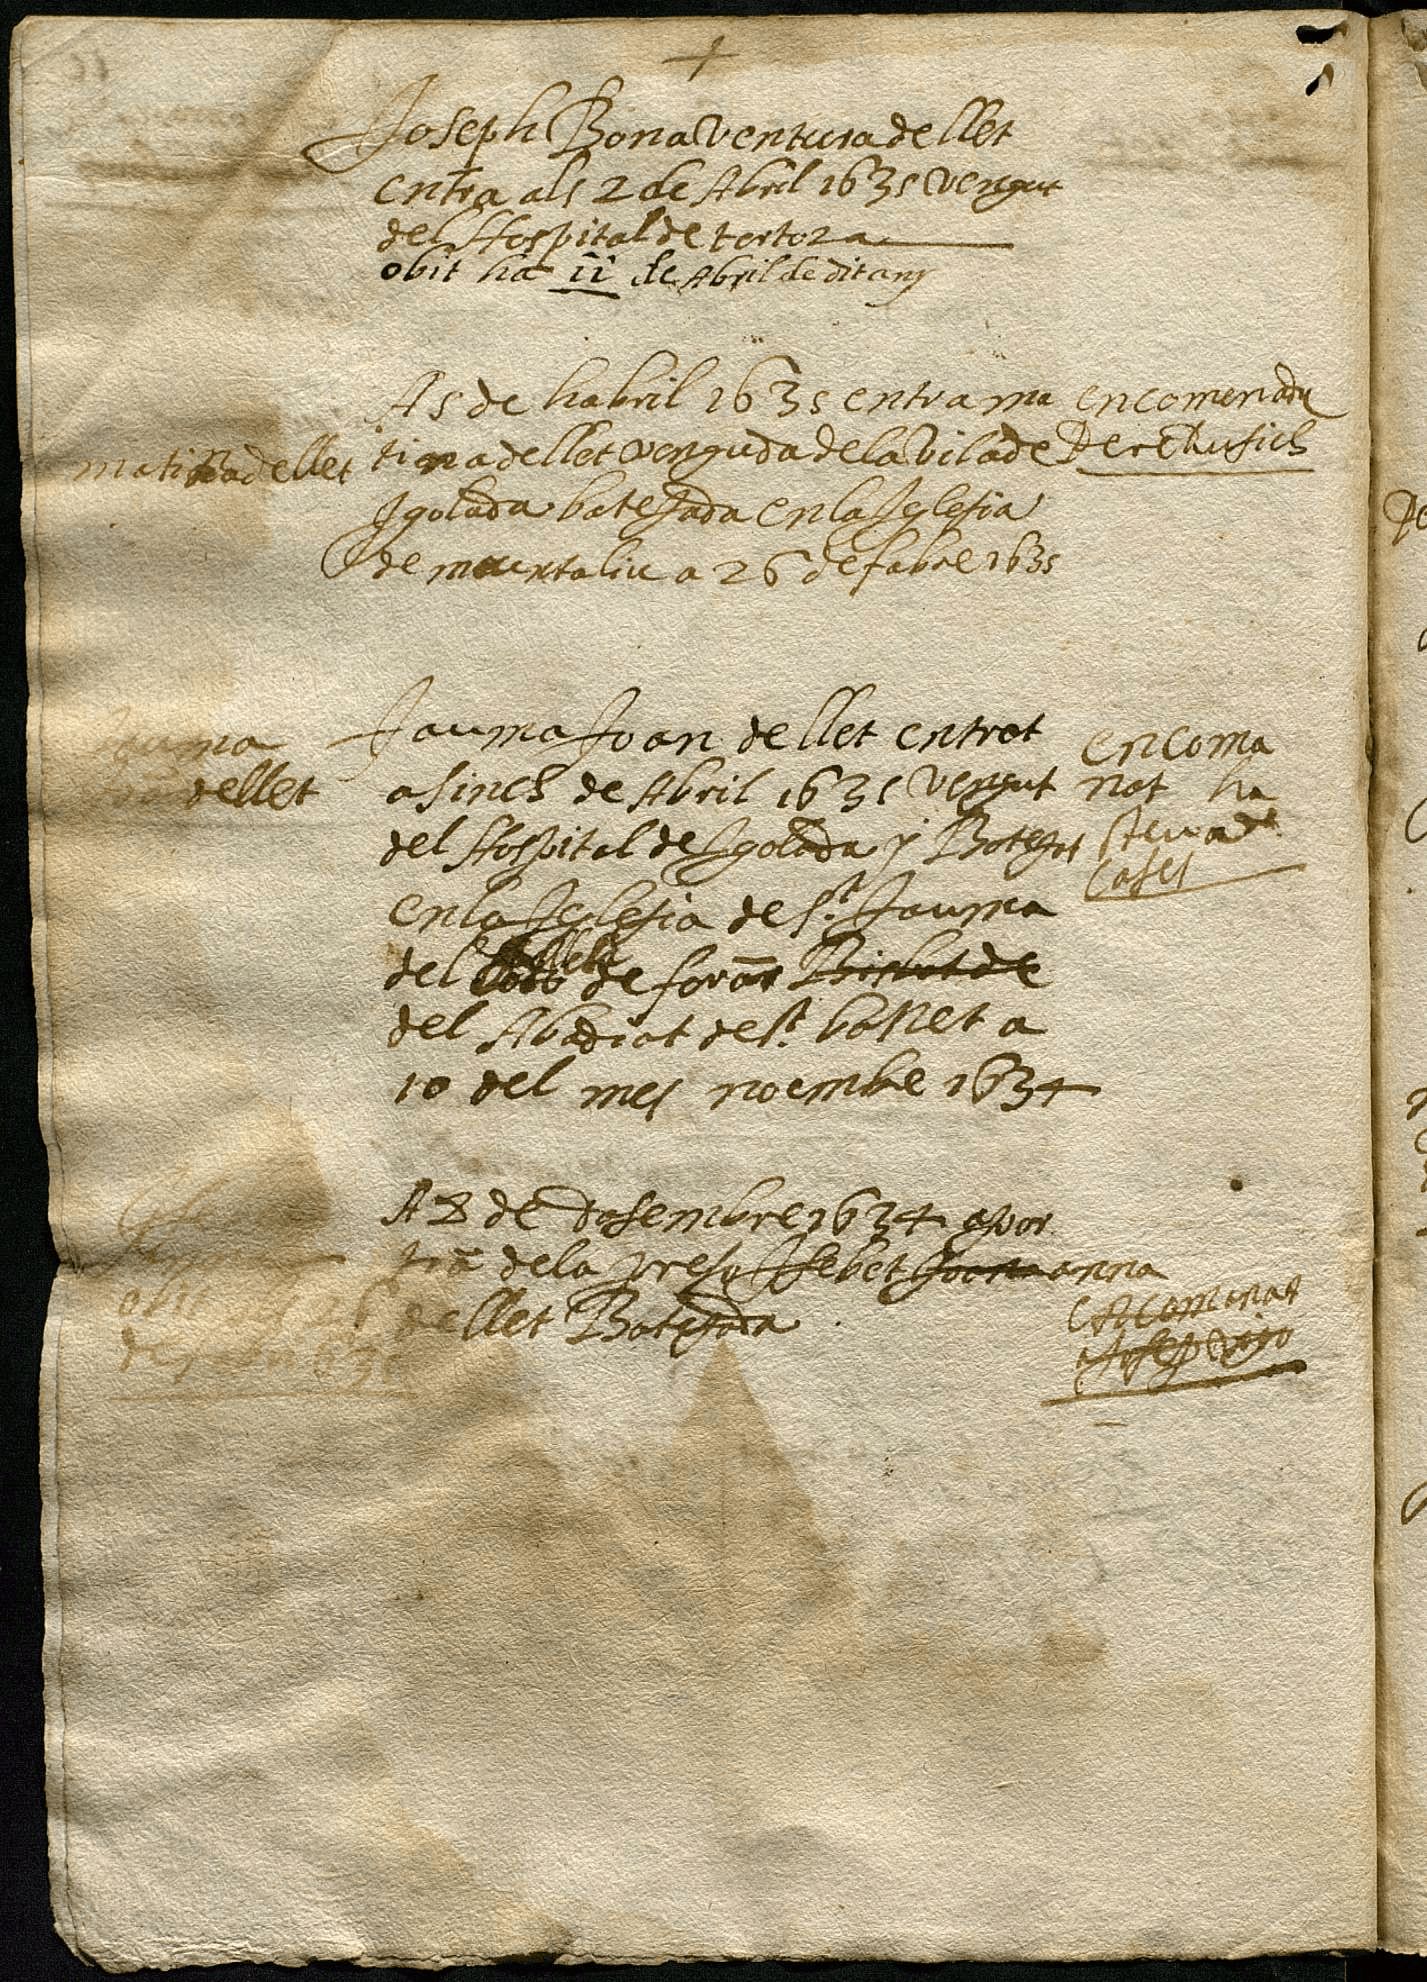 +
Joseph Bonaventura de llet
entra als 2 de Abril 1635 vengut
del Hospital de tortoza
obit ha 11 de Abril de dit any
A 5 de habril 1635 entra ma
tina de llet venguda de la Vila de
Igolada batejada en la Iglesia
de a 26 de fabre 1635
matina de llet
encomenada
Pere
Jauma Joan de llet entrat
a sinch de Abril 1635 vengut
del Hospital de Igolada y Batejat
en la Iglesia de st. Jauma
del de
del Abadiat de st. banet a
10 del mes noembre 1634
Jauma
de llet
encoma
nat ha
steva de
Cases
A 8 de desembre 1634 apor
trã de la presó Isebet Joana anna
de llet Batejada
obit
encomanat
a Josep